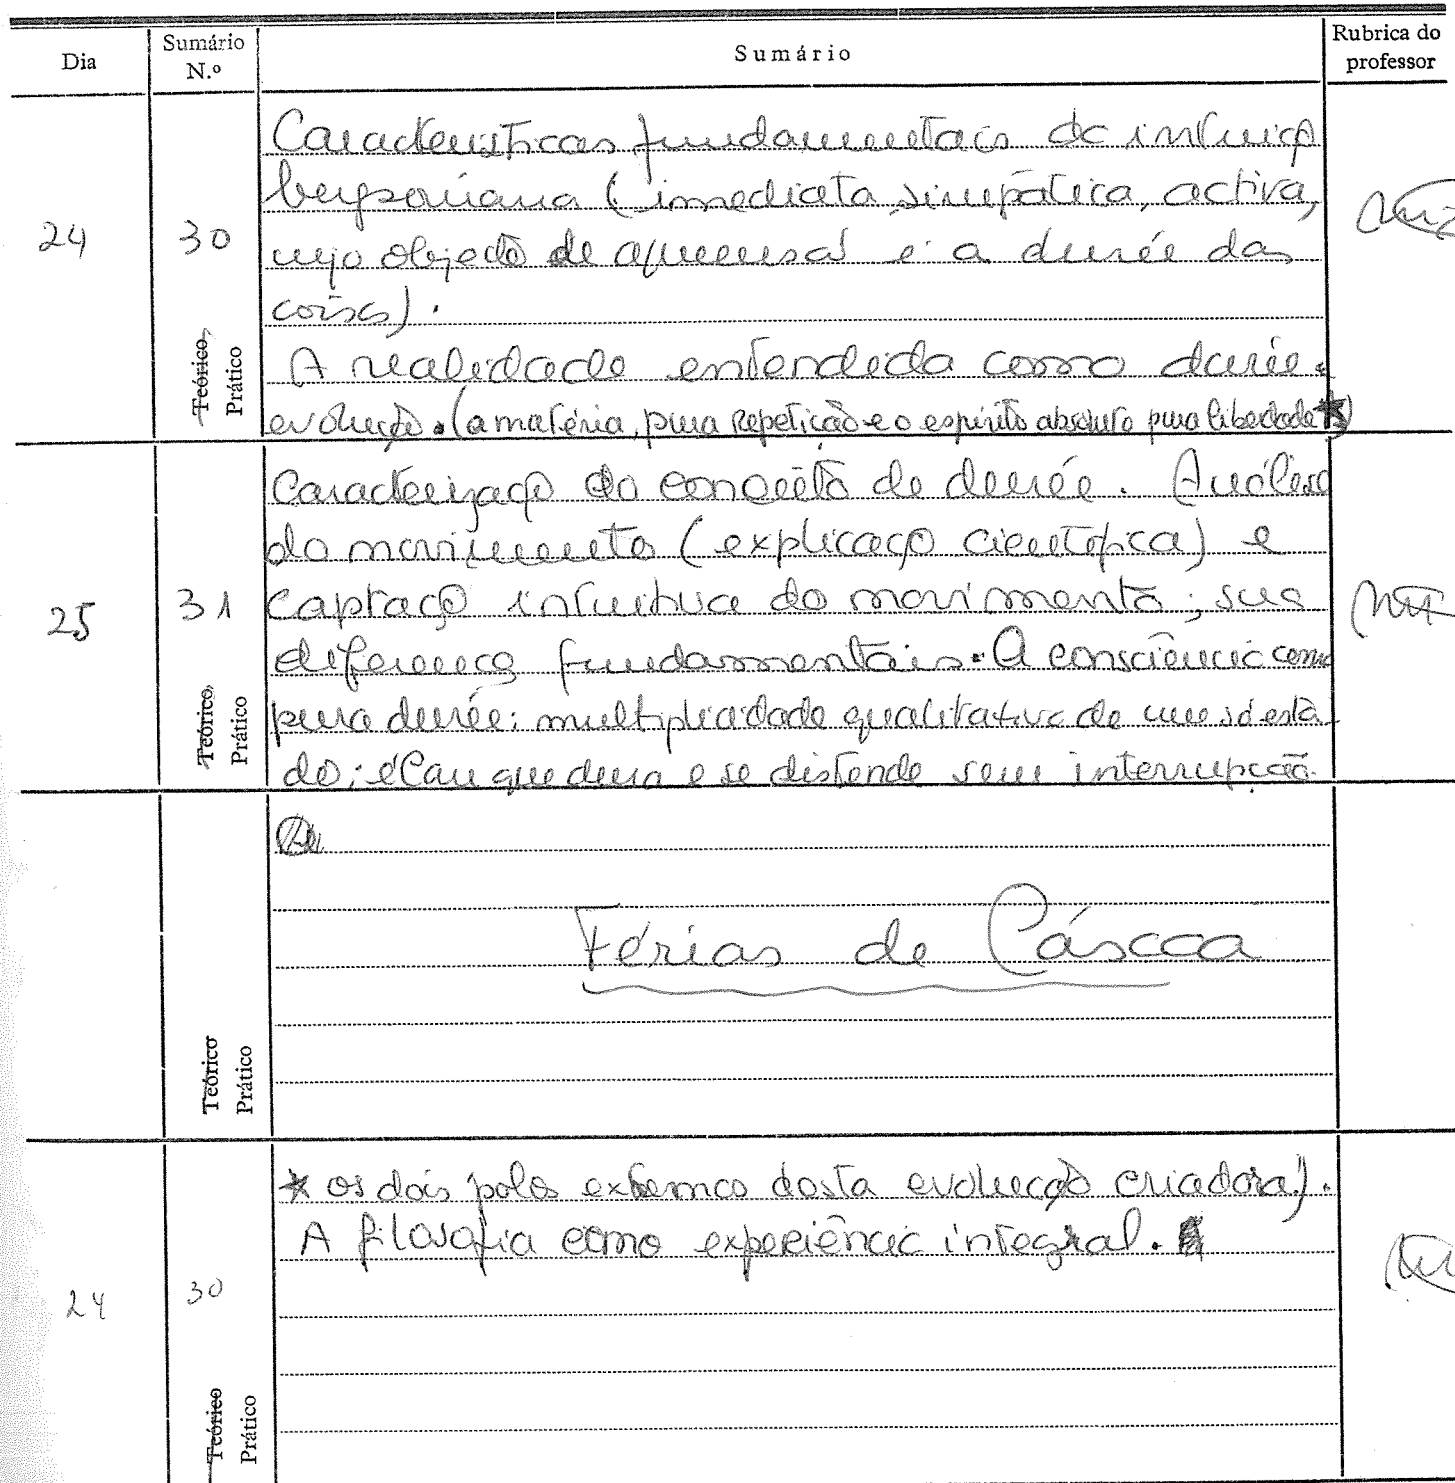 Dia
Sumário N.º
Sumário
Rubrica do professor
24
30
Teórico
Prático
Características fundamentais da intuiçã
bergsoniana (imediata, simpática, activa,
cujo objecto de apreensã é a durée das
coisas).
A realidade entendida como durée-
evoluçã. (a matéria, pura repetição e o espírito absoluto pura liberdade *)
25
31
Teórico
Prático
Caracterizaçã do conceito de durée. Análise
do movimento (explicaçã científica) e
captaçã intuitiva do movimento; suas
diferenças fundamentais. A consciência como
pura durée: multiplicidade qualitativa de um só esta
do; élan que dura e se distende sem interrupção.
Teórico
Prático
Férias de Páscoa
24
30
Teórico
Prático
* os dois polos extremos desta evolucçã criadora).
A filosofia como experiência integral.